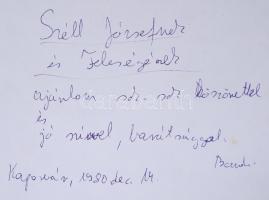 Széll Józsefnek
és Feleségének
ajánlom sok sok köszönettel
és
jó szivvel, barátsággal.
Bandi
Kaposvár, 1980 dec. 14.